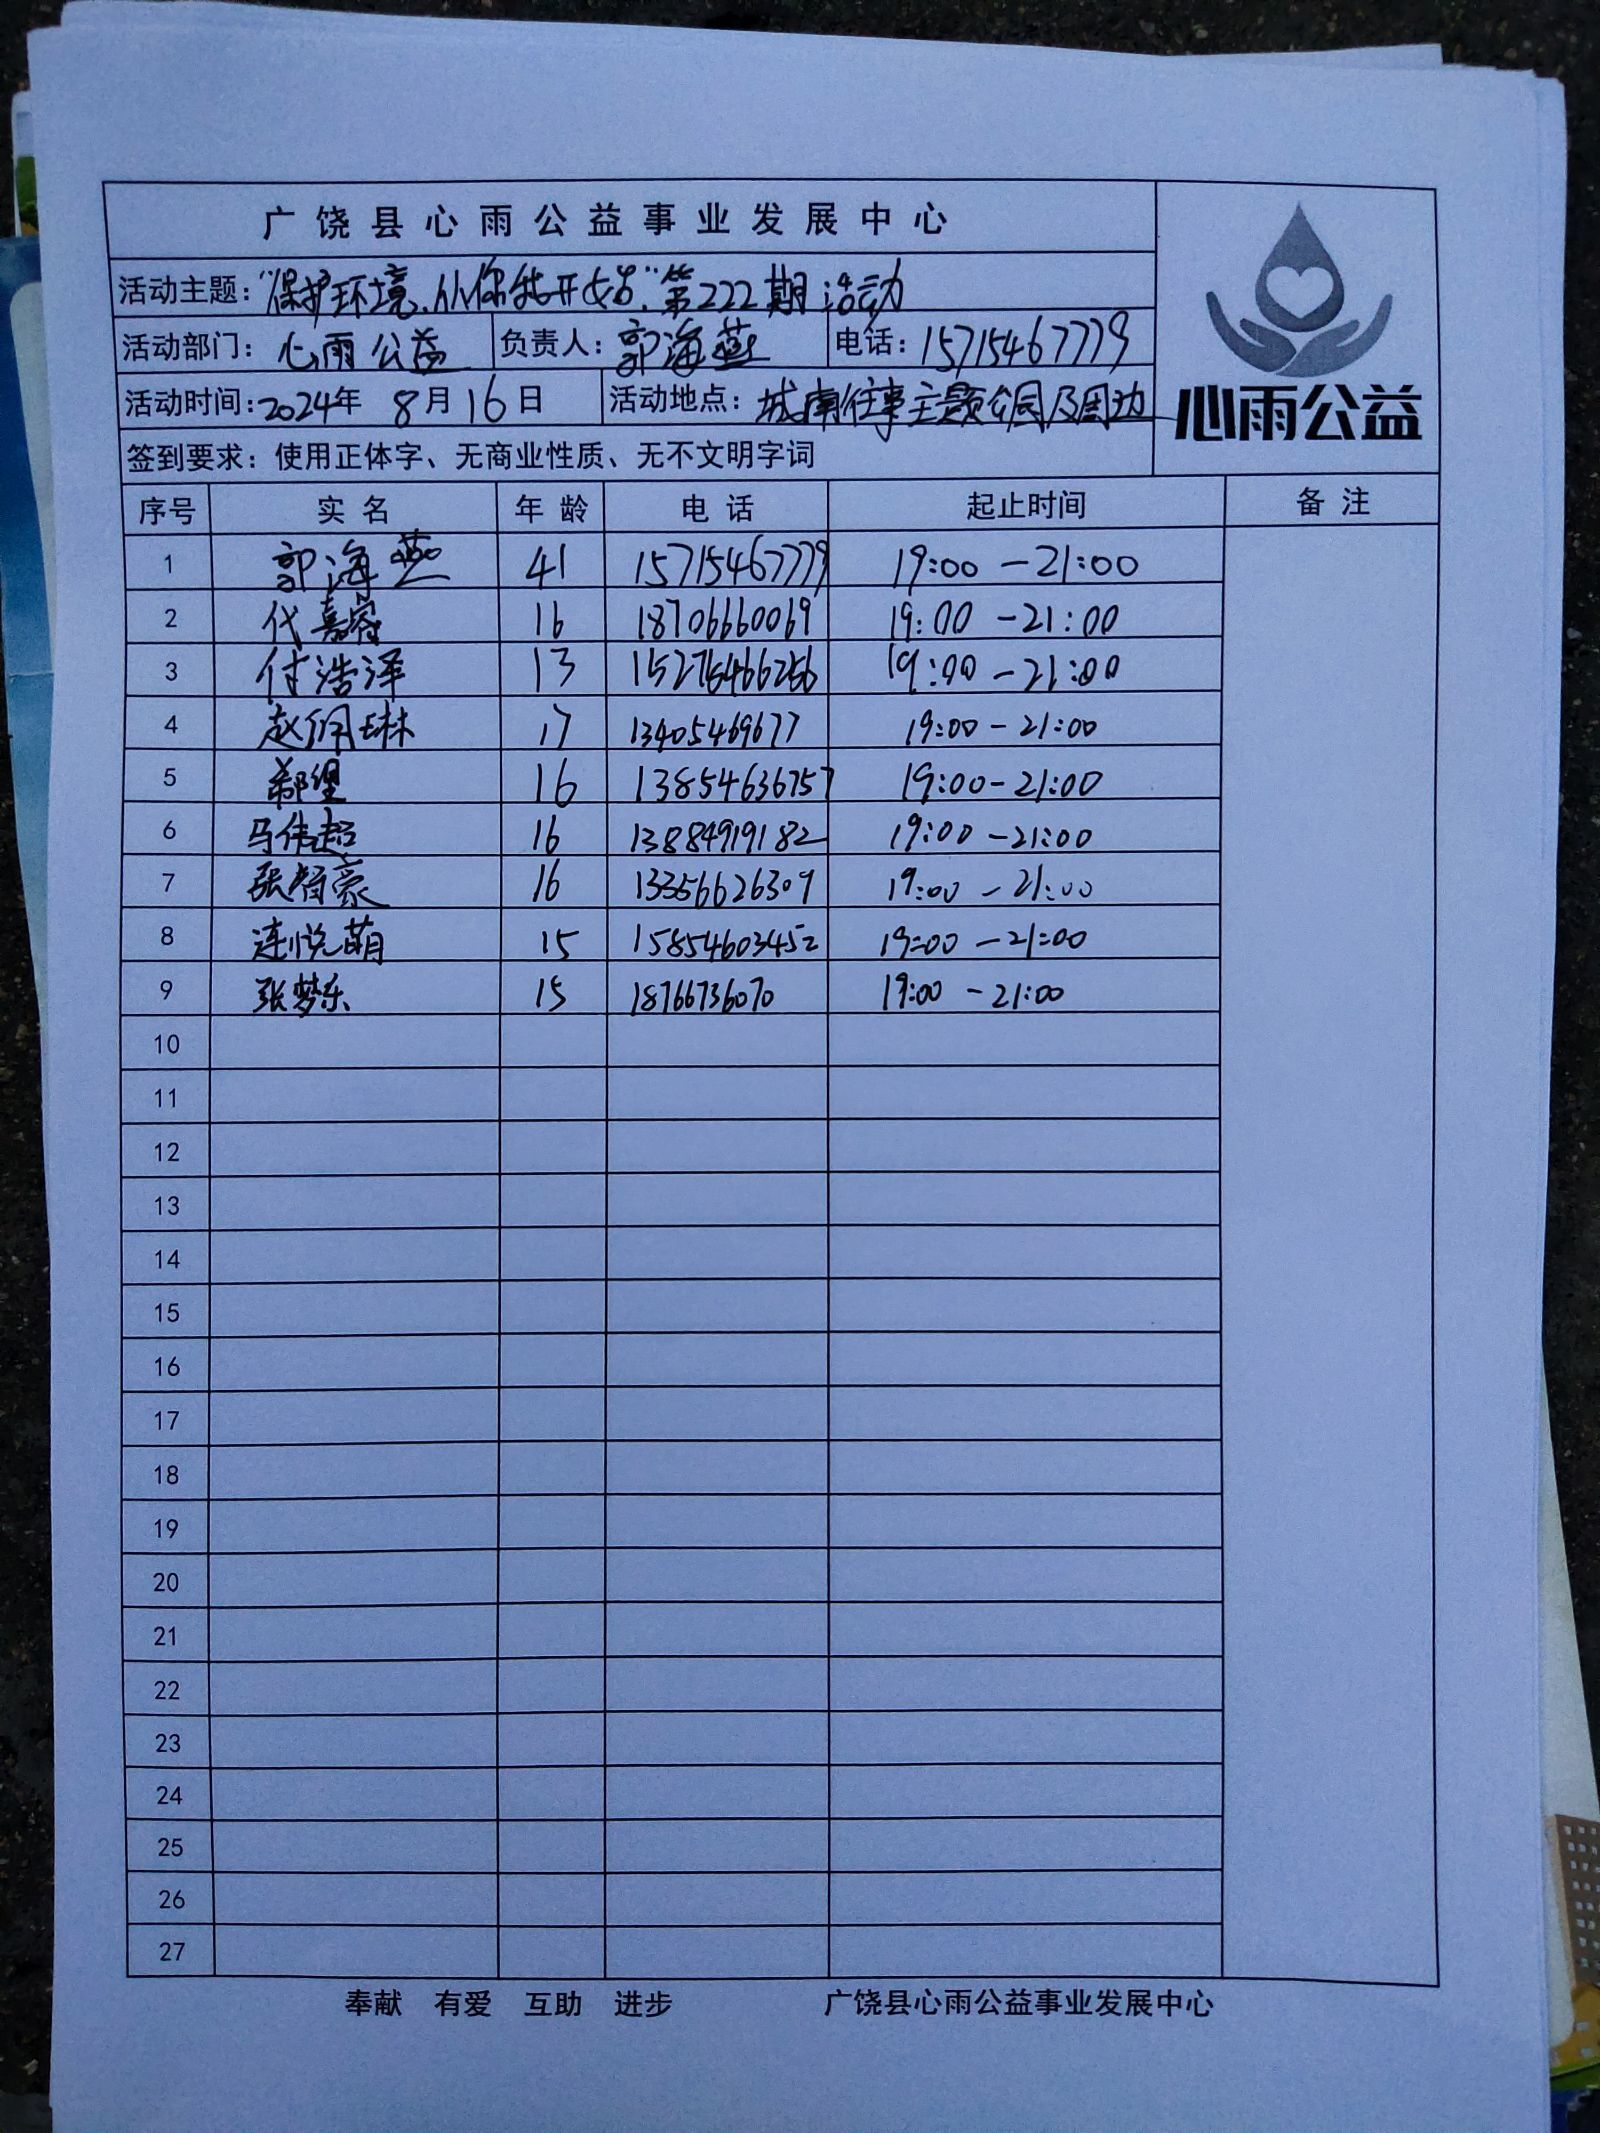 广饶县心雨公益事业发展中心
活动主题：“保护环境，从你我开始”第222期活动
活动部门：心雨公益 负责人：郭海燕 电话：15715467779
活动时间：2024年 8月16日 活动地点：城南往事主题公园及周边
心雨公益
签到要求：使用正体字、无商业性质、无不文明字词
序号 实名 年龄 电话 起止时间 备注
1 郭海燕 41 15715467779 19:00-21:00
2 代嘉睿 16 18706660069 19:00-21:00
3 付浩泽 13 15275466256 19:00-21:00
4 赵佩琳 17 13405469677 19:00-21:00
5 16 13854636757 19:00-21:00
6 马伟超 16 13884919182 19:00-21:00
7 张智豪 16 13356626309 19:00-21:00
8 连悦萌 15 15854603452 19:00-21:00
9 张梦乐 15 18766736070 19:00-21:00
10
11
12
13
14
15
16
17
18
19
20
21
22
23
24
25
26
27
奉献 有爱 互助 进步 广饶县心雨公益事业发展中心